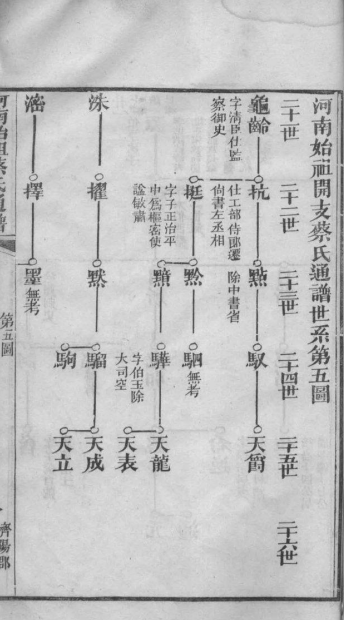 河南始祖開支蔡氏通譜世系第五圖
二十一世
二十二世
二十三世
二十四世
二十五世
二十六世
龜齡
字清臣仕監
察御史
抗
仕工部侍郎遷
尚書左丞相
點
除中書省
馭
天簡
挺
字子正治平
中爲樞密使
諡敏肅
黔
駟
無考
黯
驊
字伯玉除
大司空
天龍
天表
洙
擢
黙
騮
天成
駒
天立
滋
擇
墨
無考
河南始祖蔡氏通譜
第五圖
濟陽郡